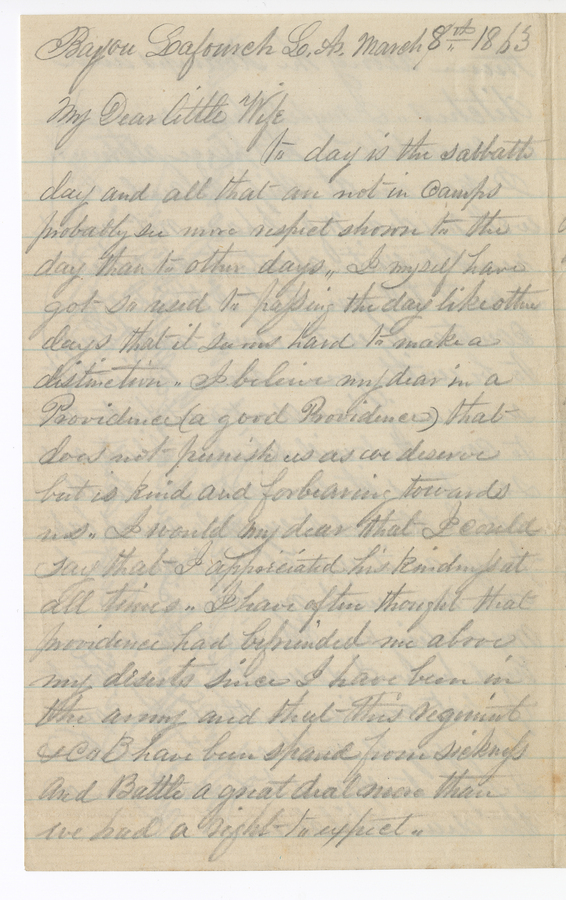 Bayou Lafourch La. March 8th 1863
My Dear little Wife
To day is the sabbath
day and all that are not in Camps
probably see more respect shown to the
day than to other days„ I myself have
got so used to passing the day like other
days that it seems hard to make a
distinction„ I believe my dear in a
Providence (a good Providence) that
does not punish us as we deserve
but is kind and forbearing towards
us„ I would my dear that I could
say that I appreciated his kindness at
all times„ I have often thought that
providence had befriended me above
my deserts since I have been in
the army and that this regiment
& Co B have been spared from sickness
and Battle a great deal more than
we had a right to expect„